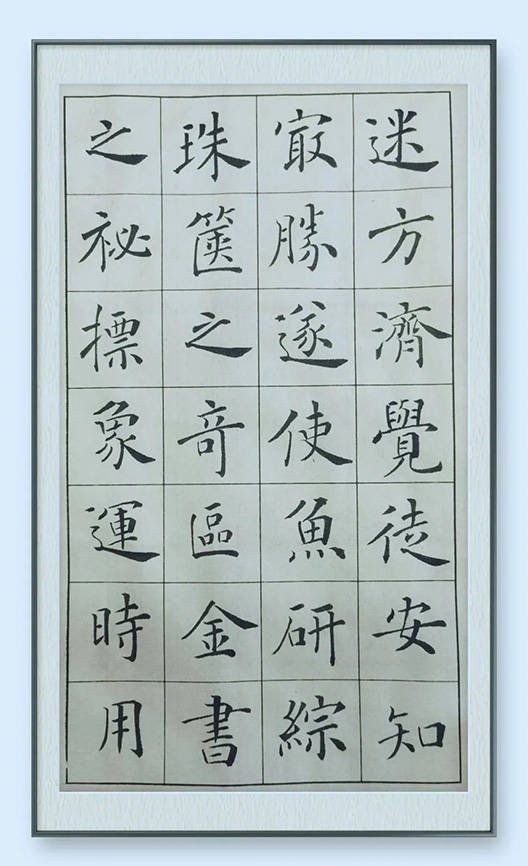 迷方濟覺徒安知
冣勝遂使魚研綜
珠箧之奇區金書
之祕摽象運時用